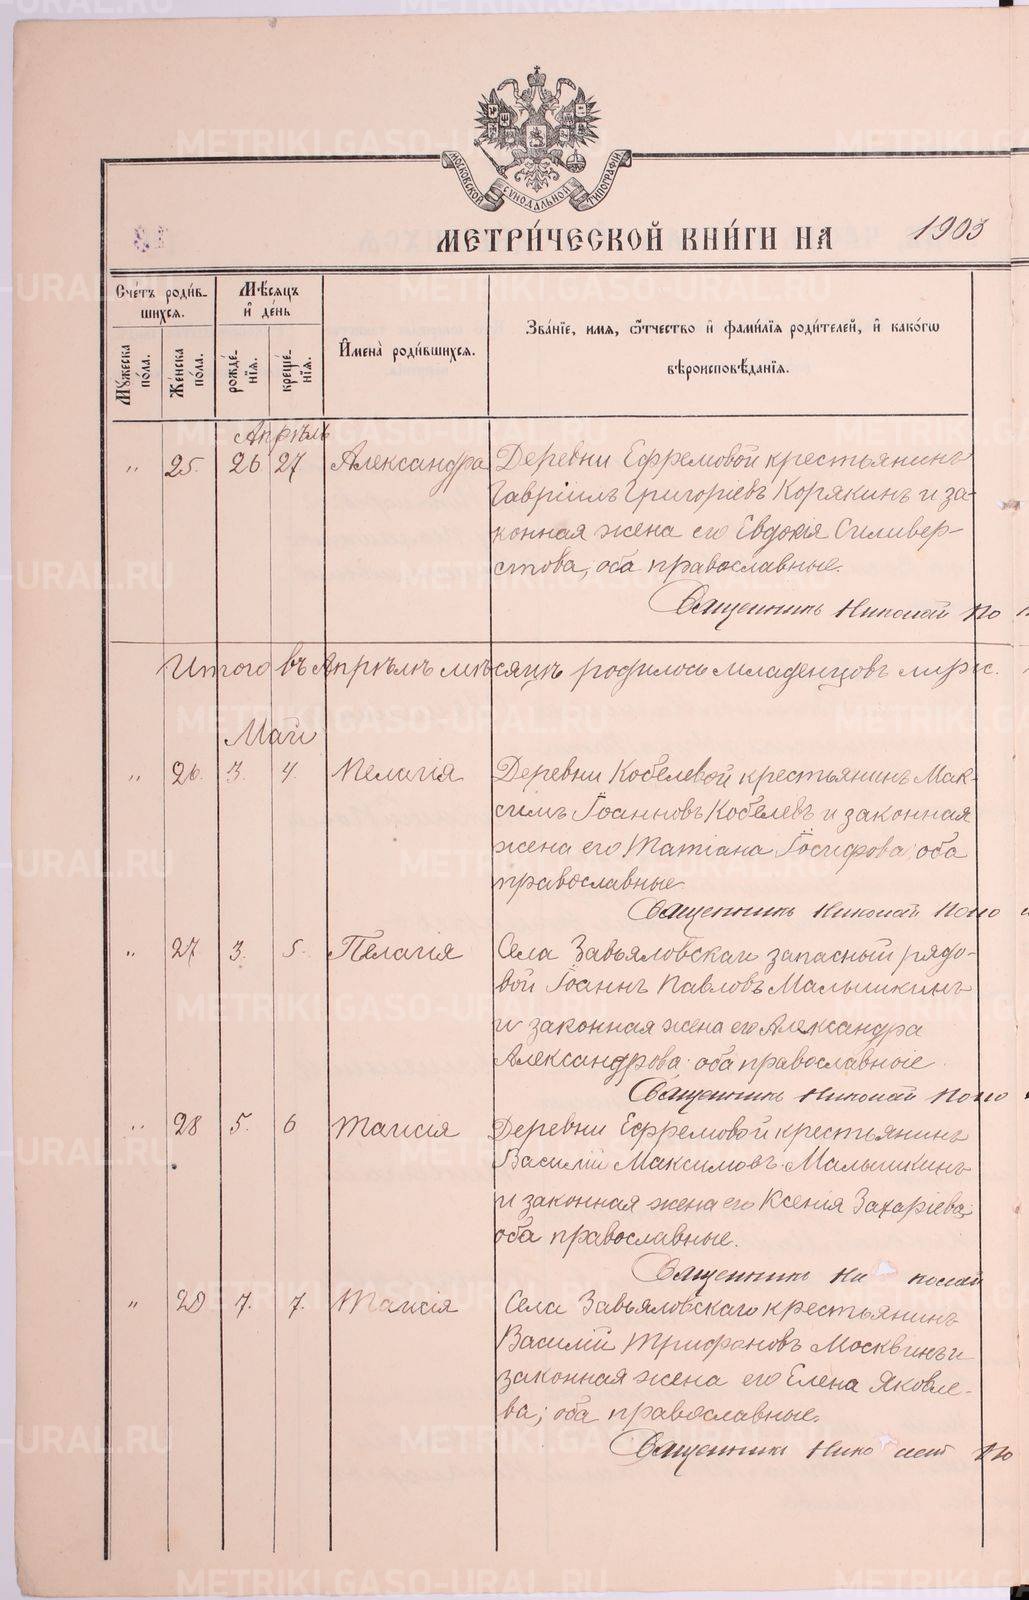 МОСКОВСКОЙ СѴНОДАЛЬНОЙ ТИПОГРАФІИ
МЕТРИ́ЧЕСКОЙ КНИ́ГИ НА 1903
Сче́тъ роди́в-
шихся.
Мꙋ́жеска по́ла.
Же́нска по́ла.
Мѣ́сяцъ и҆ де́нь
рожде́-
нїя.
креще́-
нїя.
И҆мена̀ роди́вшихся.
Зва́нїе, имя, ѻ҆́тчество и҆ фами́лїя роди́телей, и҆ како́гѡ
вѣроисповѣ́данїя.
Апрѣль
„ 25. 26 27 Александра Деревни Ефремовой крестьянинъ
Гавріилъ Григоріевъ Корякинъ и за-
конная жена его Евдокія Силивер-
стова, оба православные.
Священникъ Николай По
Итого въ Апрѣлѣ мѣсяцѣ родилось младенцовъ
Май
„ 26. 3. 4. Пелагія Деревни Кобелевой крестьянинъ Мак-
симъ Іоанновъ Кобелевъ и законная
жена его Татіана Іосифова оба
православные
Священникъ Николай Попо
„ 27. 3. 5. Пелагія Села Завьяловскаго запасный рядо-
вой Іоаннъ Павловъ Малышкинъ
и законная жена его Александра
Александрова оба православные
Священникъ Николай Попо
„ 28 5. 6 Таисія Деревни Ефремовой крестьянинъ
Василій Максимовъ Малышкинъ
и законная жена его Ксенія Захаріева;
оба православные.
Священникъ Николай
„ 29 7. 7. Таисія Села Завьяловскаго крестьянинъ
Василій Трифоновъ Москвинъ и
законная жена его Елена Яковле-
ва; оба православные.
Священникъ Николай По
METRIKI.GASO-URAL.RU